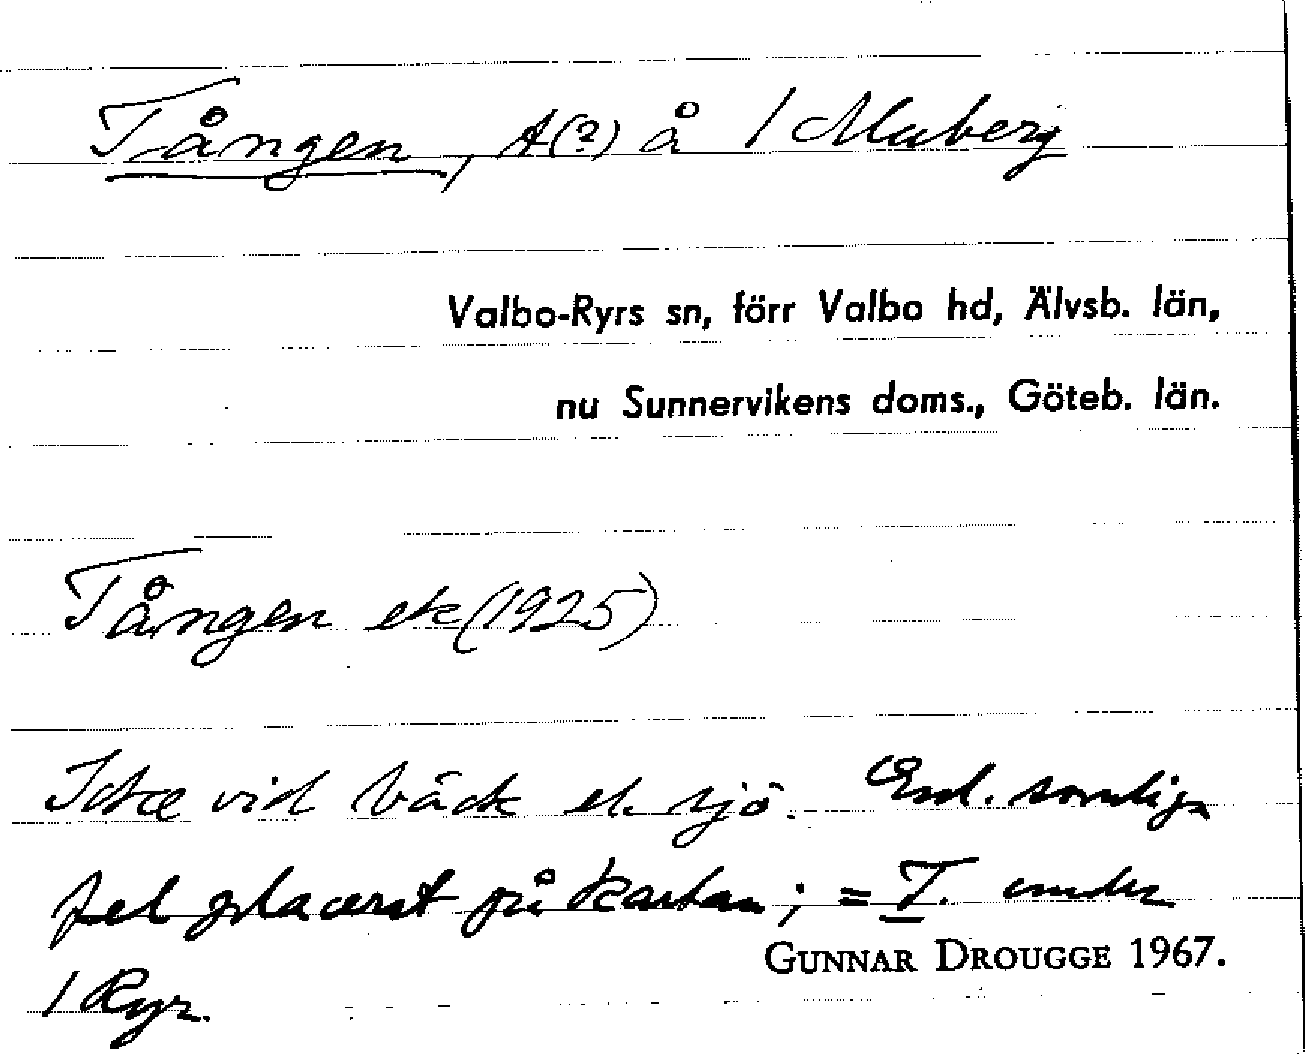 Tången, t(?) å / Muberg
Valbo-Ryrs sn, förr Valbo hd, Älvsb. län,
nu Sunnervikens doms., Göteb. län.
Tången ek (1925)
Icke vid bäck el. sjö. Enl. somliga
fel placerat på kartan; = T. under
/ Ryr.
GUNNAR DROUGGE 1967.